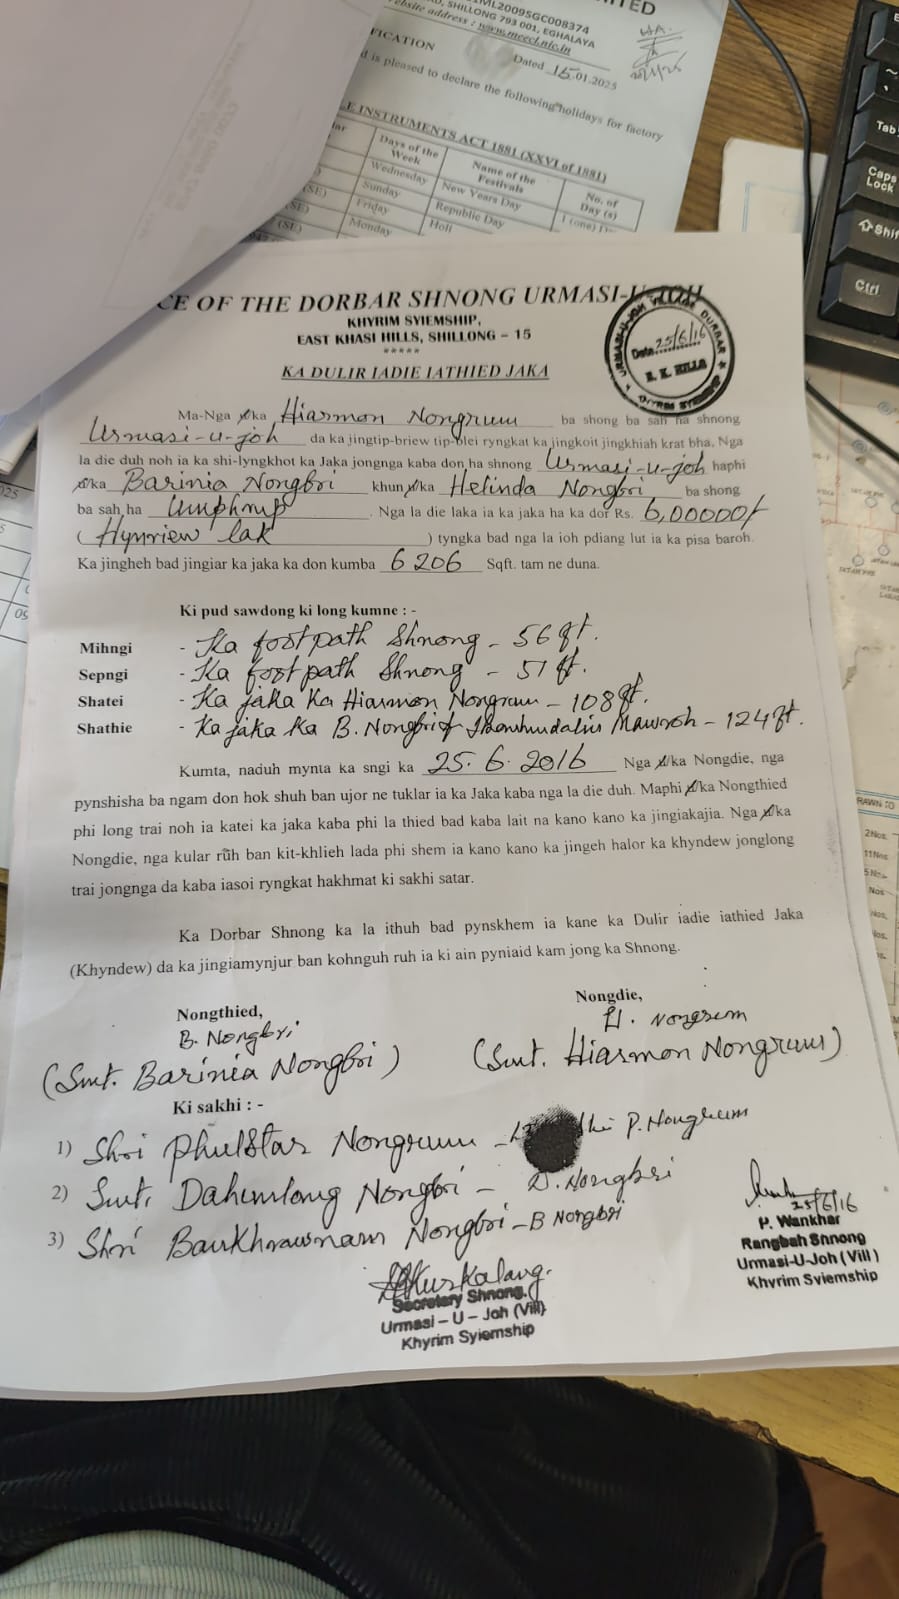 ITED
ML2009SGC008374
D, SHILLONG 793 001, EGHALAYA
ebsite address : www.meecl.nic.in
FICATION
Dated 15.01.2025
d is pleased to declare the following holidays for factory
LE INSTRUMENTS ACT 1881 (XXVI of 1881)
Days of the Week
Name of the Festivals
No. of Day (s)
Wednesday New Years Day 1 (one)
(SE) Sunday Republic Day
(SE) Friday Holi
(SE) Monday
Tab
Caps Lock
Shif
Ctrl
CE OF THE DORBAR SHNONG URMASI-U-JOH
KHYRIM SYIEMSHIP,
EAST KHASI HILLS, SHILLONG – 15
*****
URMASI-U-JOH VILLAGE DURBAR
Date 25/6/16
E. K. HILLS
KHYRIM SYIEMSHIP
KA DULIR IADIE IATHIED JAKA
Ma-Nga u/ka Hiasmon Nongrum ba shong ba sah ha shnong
Urmasi-u-joh da ka jingtip-briew tip-blei ryngkat ka jingkoit jingkhiah krat bha. Nga
la die duh noh ia ka shi-lyngkhot ka Jaka jongnga kaba don ha shnong Urmasi-u-joh haphi
u/ka Barinia Nongbri khun u/ka Helinda Nongbri ba shong
ba sah ha Umphrup . Nga la die laka ia ka jaka ha ka dor Rs. 6,00000/-
( Hynriew lak ) tyngka bad nga la ioh pdiang lut ia ka pisa baroh.
Ka jingheh bad jingiar ka jaka ka don kumba 6206 Sqft. tam ne duna.
Ki pud sawdong ki long kumne : -
Mihngi - Ka footpath Shnong - 56 ft.
Sepngi - Ka footpath Shnong - 51 ft.
Shatei - Ka jaka Ka Hiasmon Nongrum - 108 ft.
Shathie - Ka jaka Ka B. Nongbri Mawroh - 124 ft.
Kumta, naduh mynta ka sngi ka 25.6.2016 Nga u/ka Nongdie, nga
pynshisha ba ngam don hok shuh ban ujor ne tuklar ia ka Jaka kaba nga la die duh. Maphi u/ka Nongthied
phi long trai noh ia katei ka jaka kaba phi la thied bad kaba lait na kano kano ka jingiakajia. Nga u/ka
Nongdie, nga kular rũh ban kit-khlieh lada phi shem ia kano kano ka jingeh halor ka khyndew jonglong
trai jongnga da kaba iasoi ryngkat hakhmat ki sakhi satar.
Ka Dorbar Shnong ka la ithuh bad pynskhem ia kane ka Dulir iadie iathied Jaka
(Khyndew) da ka jingiamynjur ban kohnguh ruh ia ki ain pyniaid kam jong ka Shnong.
Nongthied,
B. Nongbri
(Smt. Barinia Nongbri)
Nongdie,
H. Nongrum
(Smt. Hiasmon Nongrum)
Ki sakhi : -
1) Shri Phulstar Nongrum - P. Nongrum
2) Smt. Dahunlang Nongbri - D. Nongbri
3) Shri Nongbri - B Nongbri
Kurkalang.
Secretary Shnong.
Urmasi – U – Joh (Vill)
Khyrim Syiemship
25/6/16
P. Wankhar
Rangbah Shnong
Urmasi-U-Joh (Vill )
Khyrim Syiemship